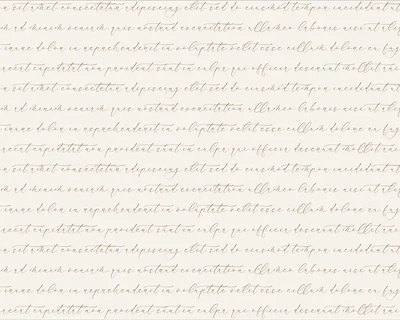 sit amet consectetur adipiscing elit sed do eiusmod tempor incididunt
ad minim veniam quis nostrud exercitation ullamco laboris nisi ut
irure dolor in reprehenderit in voluptate velit esse cillum dolore eu
cupidatat non proident sunt in culpa qui officia deserunt mollit
sit amet consectetur adipiscing elit sed do eiusmod tempor incididunt
ad minim veniam quis nostrud exercitation ullamco laboris nisi ut
irure dolor in reprehenderit in voluptate velit esse cillum dolore eu
cupidatat non proident sunt in culpa qui officia deserunt mollit
sit amet consectetur adipiscing elit sed do eiusmod tempor incididunt
ad minim veniam quis nostrud exercitation ullamco laboris nisi ut
irure dolor in reprehenderit in voluptate velit esse cillum dolore eu
cupidatat non proident sunt in culpa qui officia deserunt mollit
sit amet consectetur adipiscing elit sed do eiusmod tempor incididunt
ad minim veniam quis nostrud exercitation ullamco laboris nisi ut
irure dolor in reprehenderit in voluptate velit esse cillum dolore eu
cupidatat non proident sunt in culpa qui officia deserunt mollit